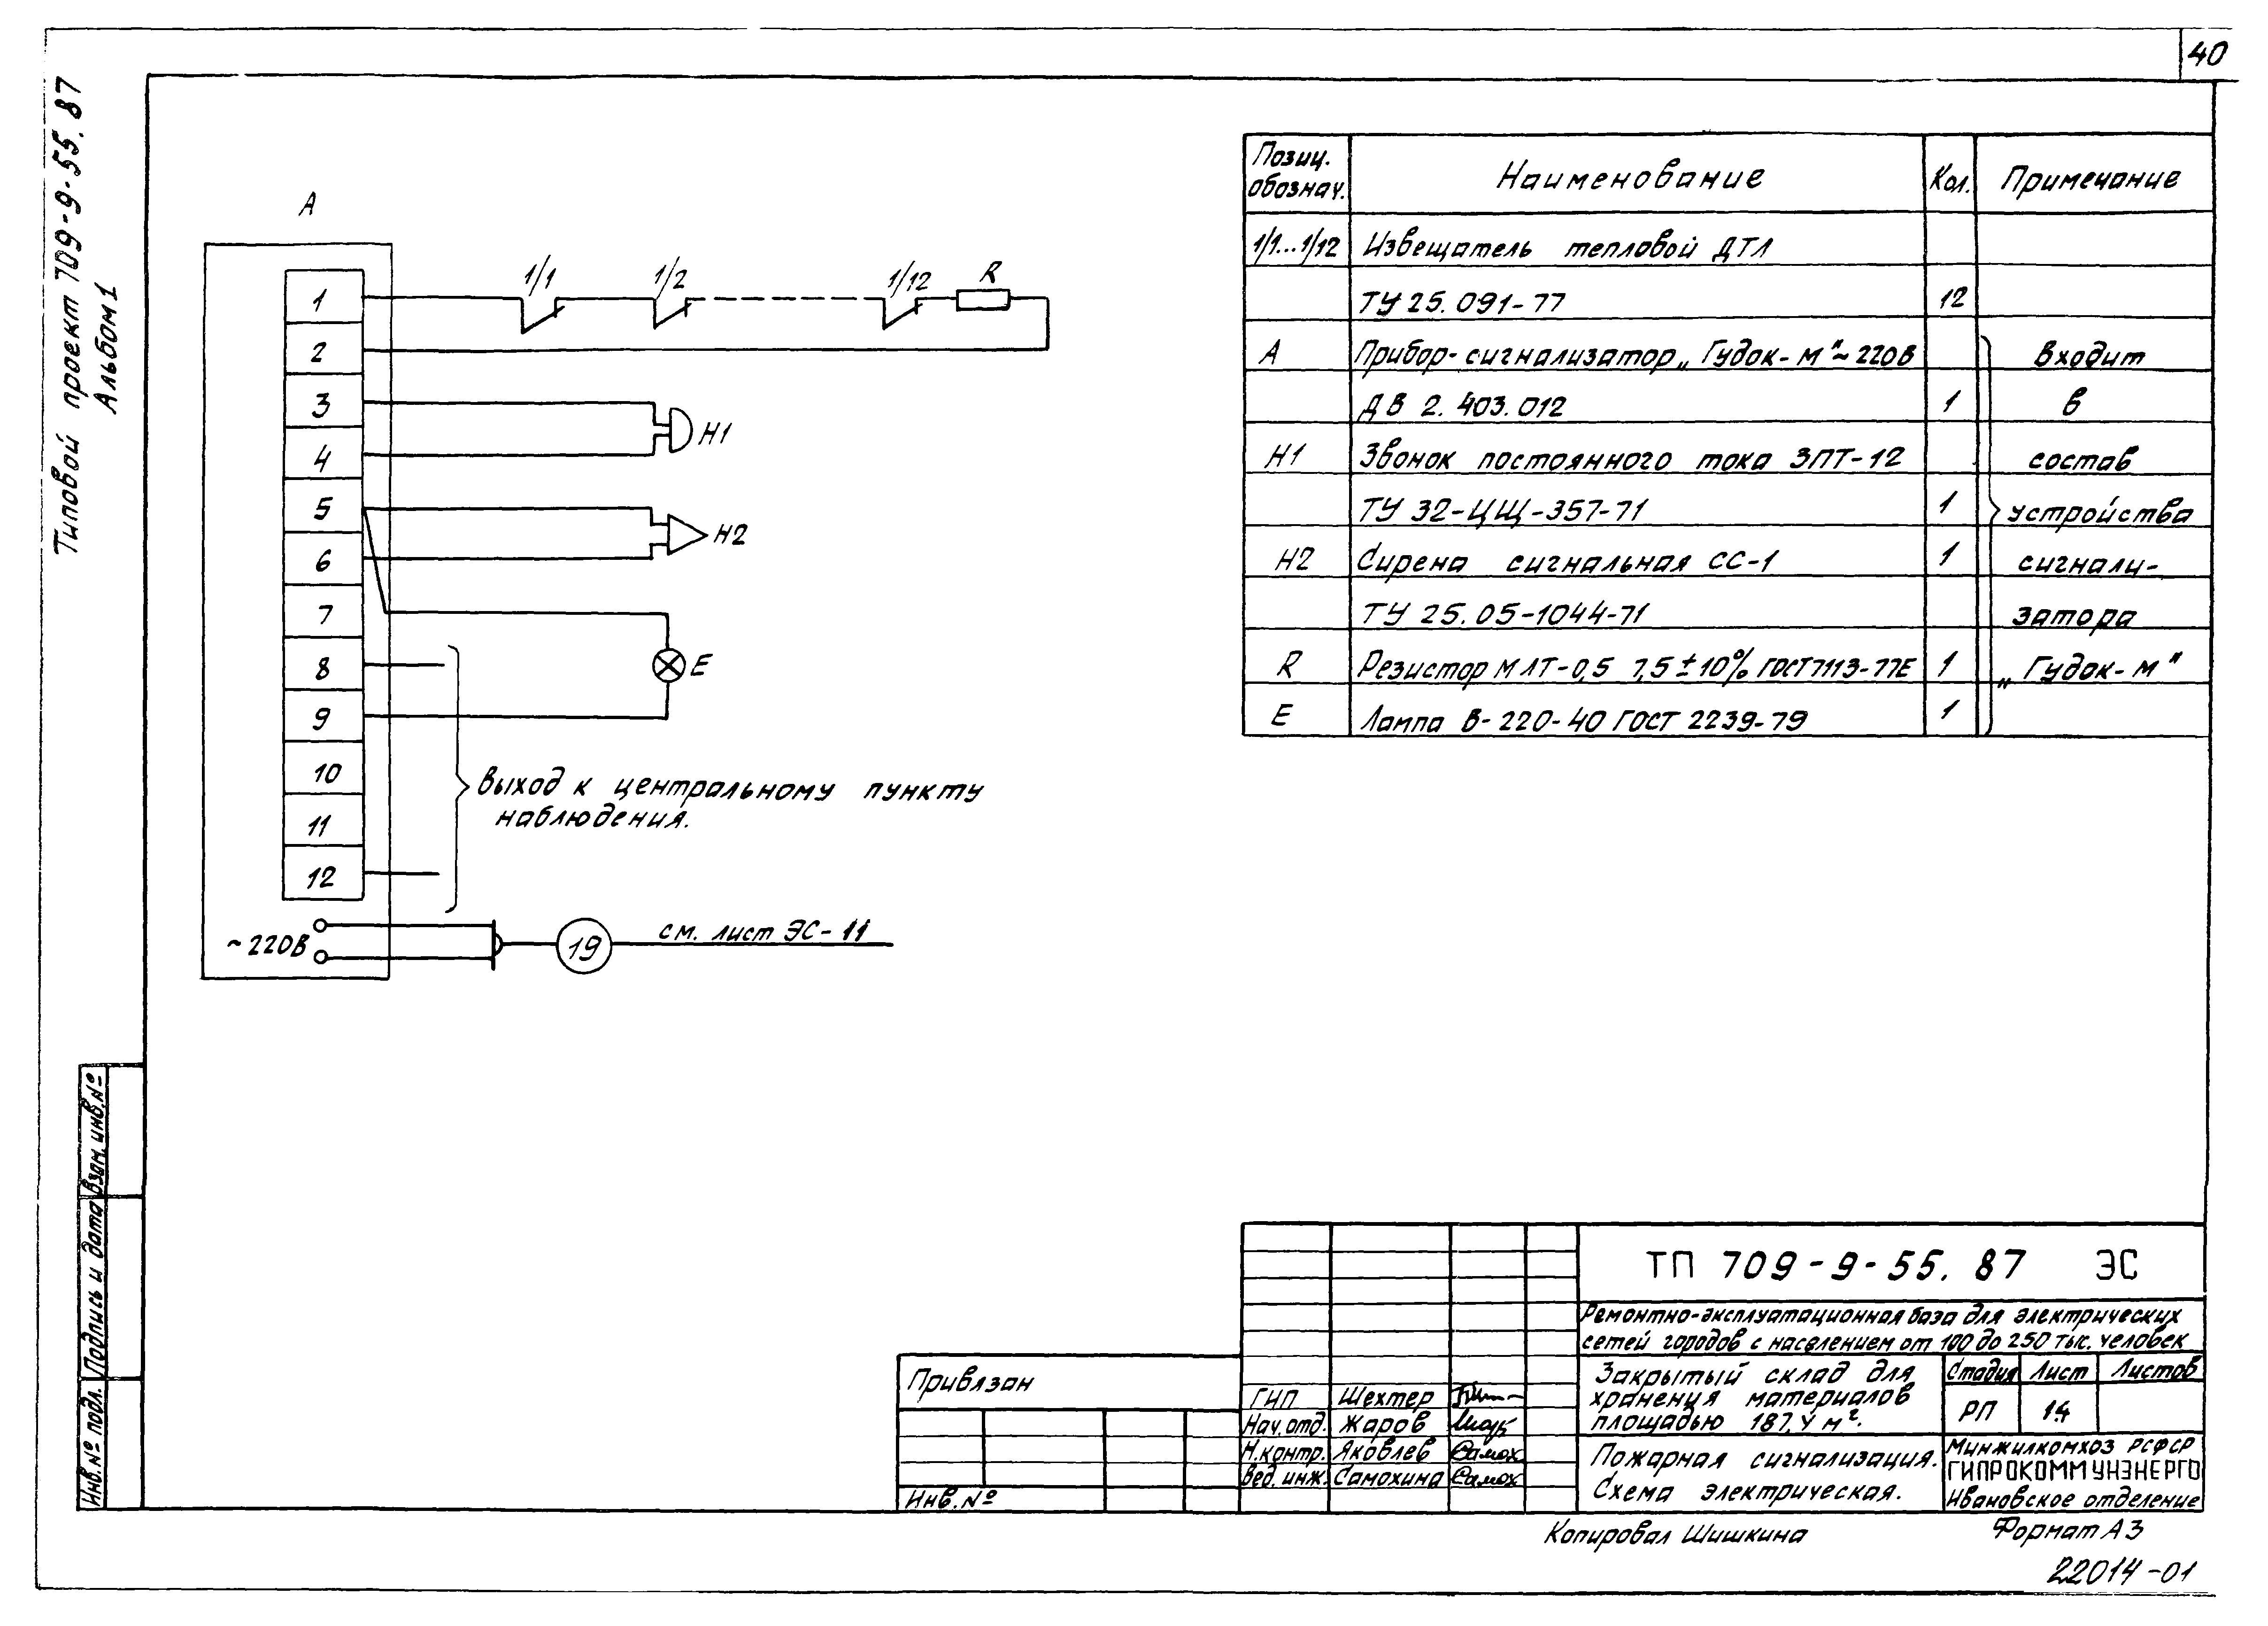 40
Типовой проект 709-9-55.87
Альбом 1
А
1
2
3
4
5
6
7
8
9
10
11
12
1/1
1/2
1/12
R
Н1
Н2
Е
Выход к центральному пункту
наблюдения.
~220В
19
см. лист ЭС-11
Позиц. обознач.
Наименование
Кол.
Примечание
1/1...1/12 Извещатель тепловой ДТЛ
ТУ 25.091-77 12
А Прибор-сигнализатор „Гудок-м"~220В Входит
ДВ 2.403.012 1 в
Н1 Звонок постоянного тока ЗПТ-12 состав
ТУ 32-ЦЩ-357-71 1 устройства
Н2 Сирена сигнальная СС-1 1 сигнали-
ТУ 25.05-1044-71 затора
R Резистор МЛТ-0,5 7,5±10% ГОСТ7113-77Е 1 „Гудок-м"
Е Лампа В-220-40 ГОСТ 2239-79 1
Взам. инв. №
Подпись и дата
Инв. № подл.
Привязан
Инв. №
ГИП Шехтер
Нач. отд. Жаров
Н. контр. Яковлев Самох
Вед. инж. Самохина Самох
ТП 709-9-55.87 ЭС
Ремонтно-эксплуатационная база для электрических
сетей городов с населением от 100 до 250 тыс. человек
Закрытый склад для
хранения материалов
площадью 187,4 м².
Стадия Лист Листов
РП 14
Пожарная сигнализация.
Схема электрическая.
Минжилкомхоз РСФСР
ГИПРОКОММУНЭНЕРГО
Ивановское отделение
Копировал Шишкина
Формат А3
22014-01